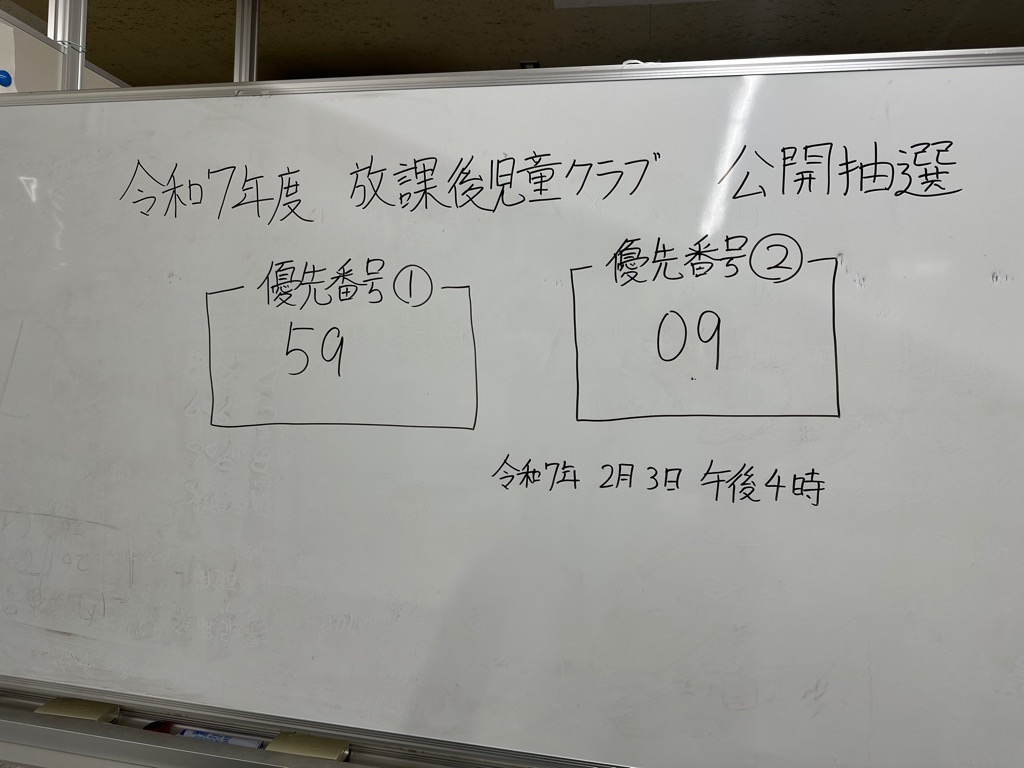 令和7年度 放課後児童クラブ 公開抽選
優先番号①
59
優先番号②
09
令和7年 2月3日 午後4時